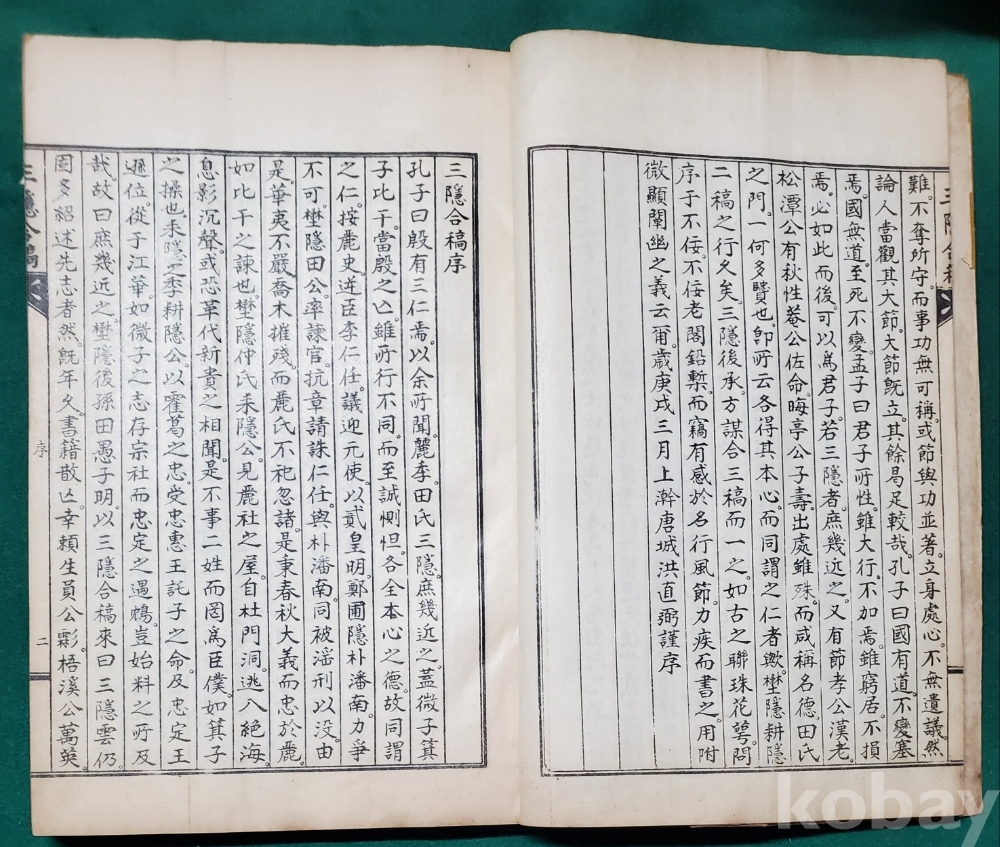 三隱合稿
難。不奪所守。而事功無可稱。或節與功並著。立身處心。不無遺議。然
論人當觀其大節。大節旣立。其餘曷足較哉。孔子曰國有道。不變塞
焉。國無道。至死不變。孟子曰君子所性。雖大行。不加焉。雖窮居。不損
焉。必如此而後。可以爲君子。若三隱者。庶幾近之。又有節孝公漢老。
松潭公有秋性菴公佐命。晦亭公子壽。出處雖殊。而咸稱名德。田氏
之門。一何多賢也。卽所云各得其本心。而同謂之仁者歟。壄隱耕隱
二稿之行久矣。三隱後承。方謀合三稿而一之。如古之聯珠花萼。問
序于不佞。不佞老閣鉛槧。而竊有感於名行風節。力疾而書之。用附
微顯闡幽之義云爾。歲庚戌三月上澣唐城洪直弼謹序
三隱合稿序
孔子曰殷有三仁焉。以余所聞。麗季。田氏三隱。庶幾近之。蓋微子箕
子比干。當殷之亡。雖所行不同。而至誠惻怛。各全本心之德。故同謂
之仁。按麗史。逆臣李仁任。議迎元使。以貳皇明。鄭圃隱朴潘南。力爭
不可。壄隱田公。率諫官。抗章請誅仁任。與朴潘南。同被滛刑以沒。由
是華夷不嚴。喬木摧殘。而麗氏不祀忽諸。是秉春秋大義而忠於麗
如比干之諫也。壄隱仲氏耒隱公。見麗社之屋。自杜門洞。逃入絶海
息影沉聲。或恐革代新貴之相聞。是不事二姓而罔爲臣僕。如箕子
之操也。耒隱之季耕隱公。以霍葛之忠。受忠惠王託子之命。及忠定王
遜位。從于江華。如微子之志存宗社而忠定之遇鴆。豈始料之所及
哉。故曰庶幾近之。壄隱後孫田愚子明。以三隱合稿來曰三隱雲仍。
固多紹述先志者然。旣年久。書籍散亡。幸賴生員公霦。梧溪公萬英。
三隱合稿
序
二
kobay